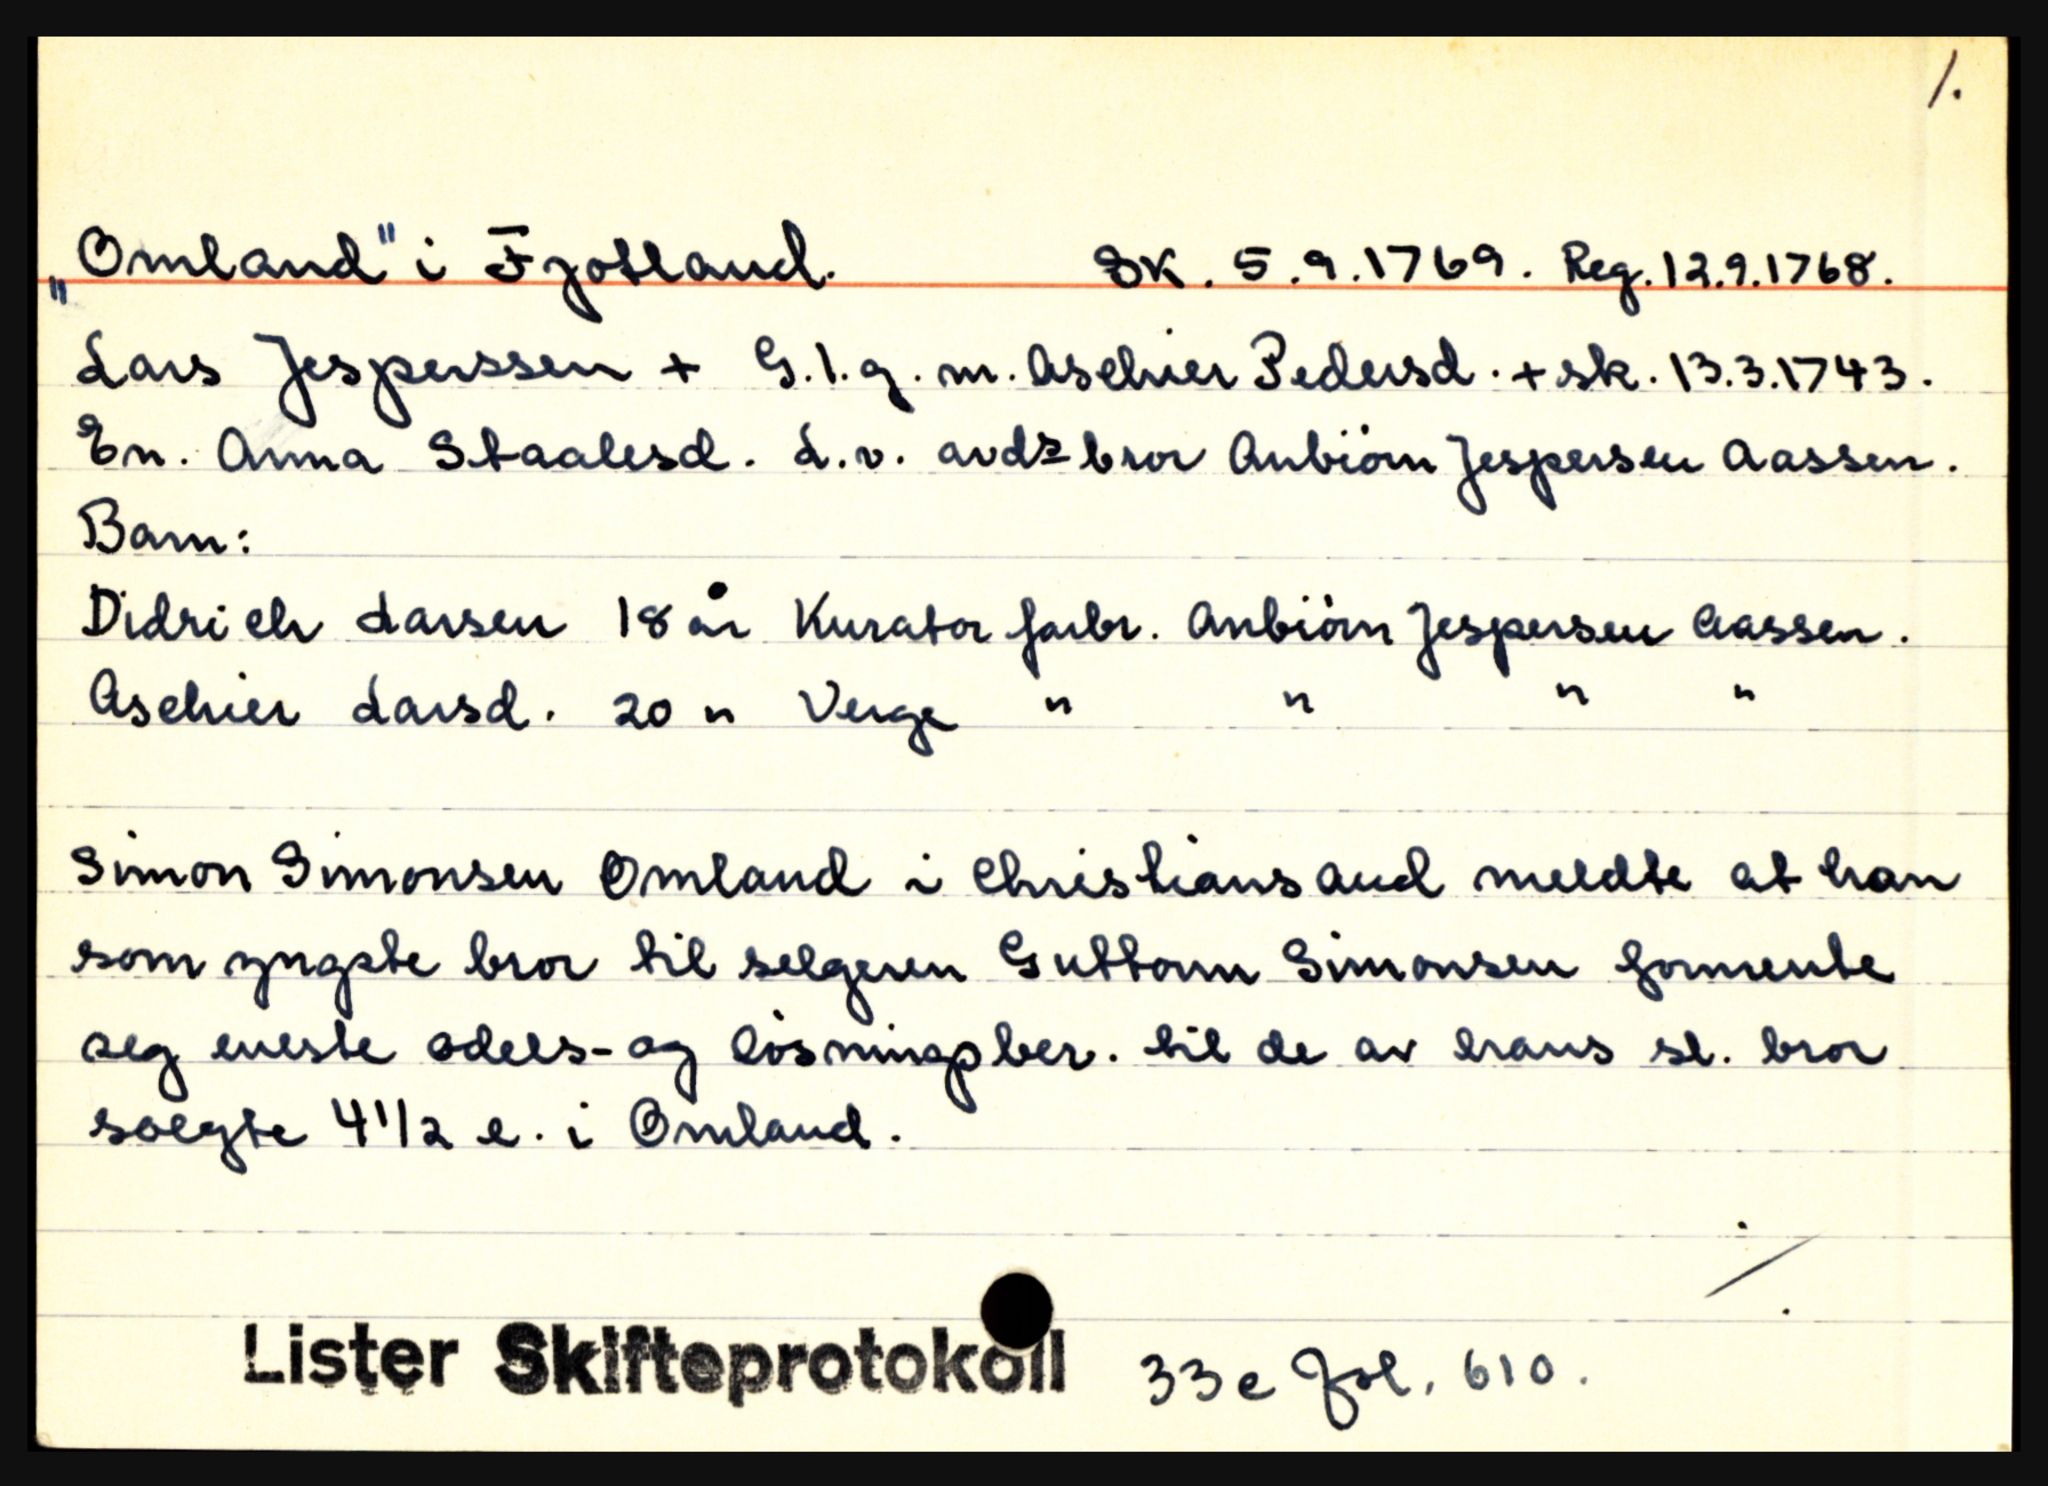 1.
„Omland" i Fjotland. SK. 5.9.1769. Reg. 12.9.1768.
Lars Jesperssen + G.1.g. m. Aschier Pedersd. + sk. 13.3.1743.
En. Anna Staalesd. L.v. avds bror Anbiörn Jespersen Aassen.
Barn:
Didrich Larsen 18 år Kurator farbr. Anbiörn Jespersen Aassen.
Aschier Larsd. 20 " Verge " " " "
Simon Simonsen Omland i Christiansand meldte at han
som yngste bror til selgeren Guttorm Simonsen formente
seg eneste odels- og løsningsber. til de av hans sl. bror
solgte 4 1/2 e. i Omland.
./.
Lister Skifteprotokoll 33e Fol. 610.